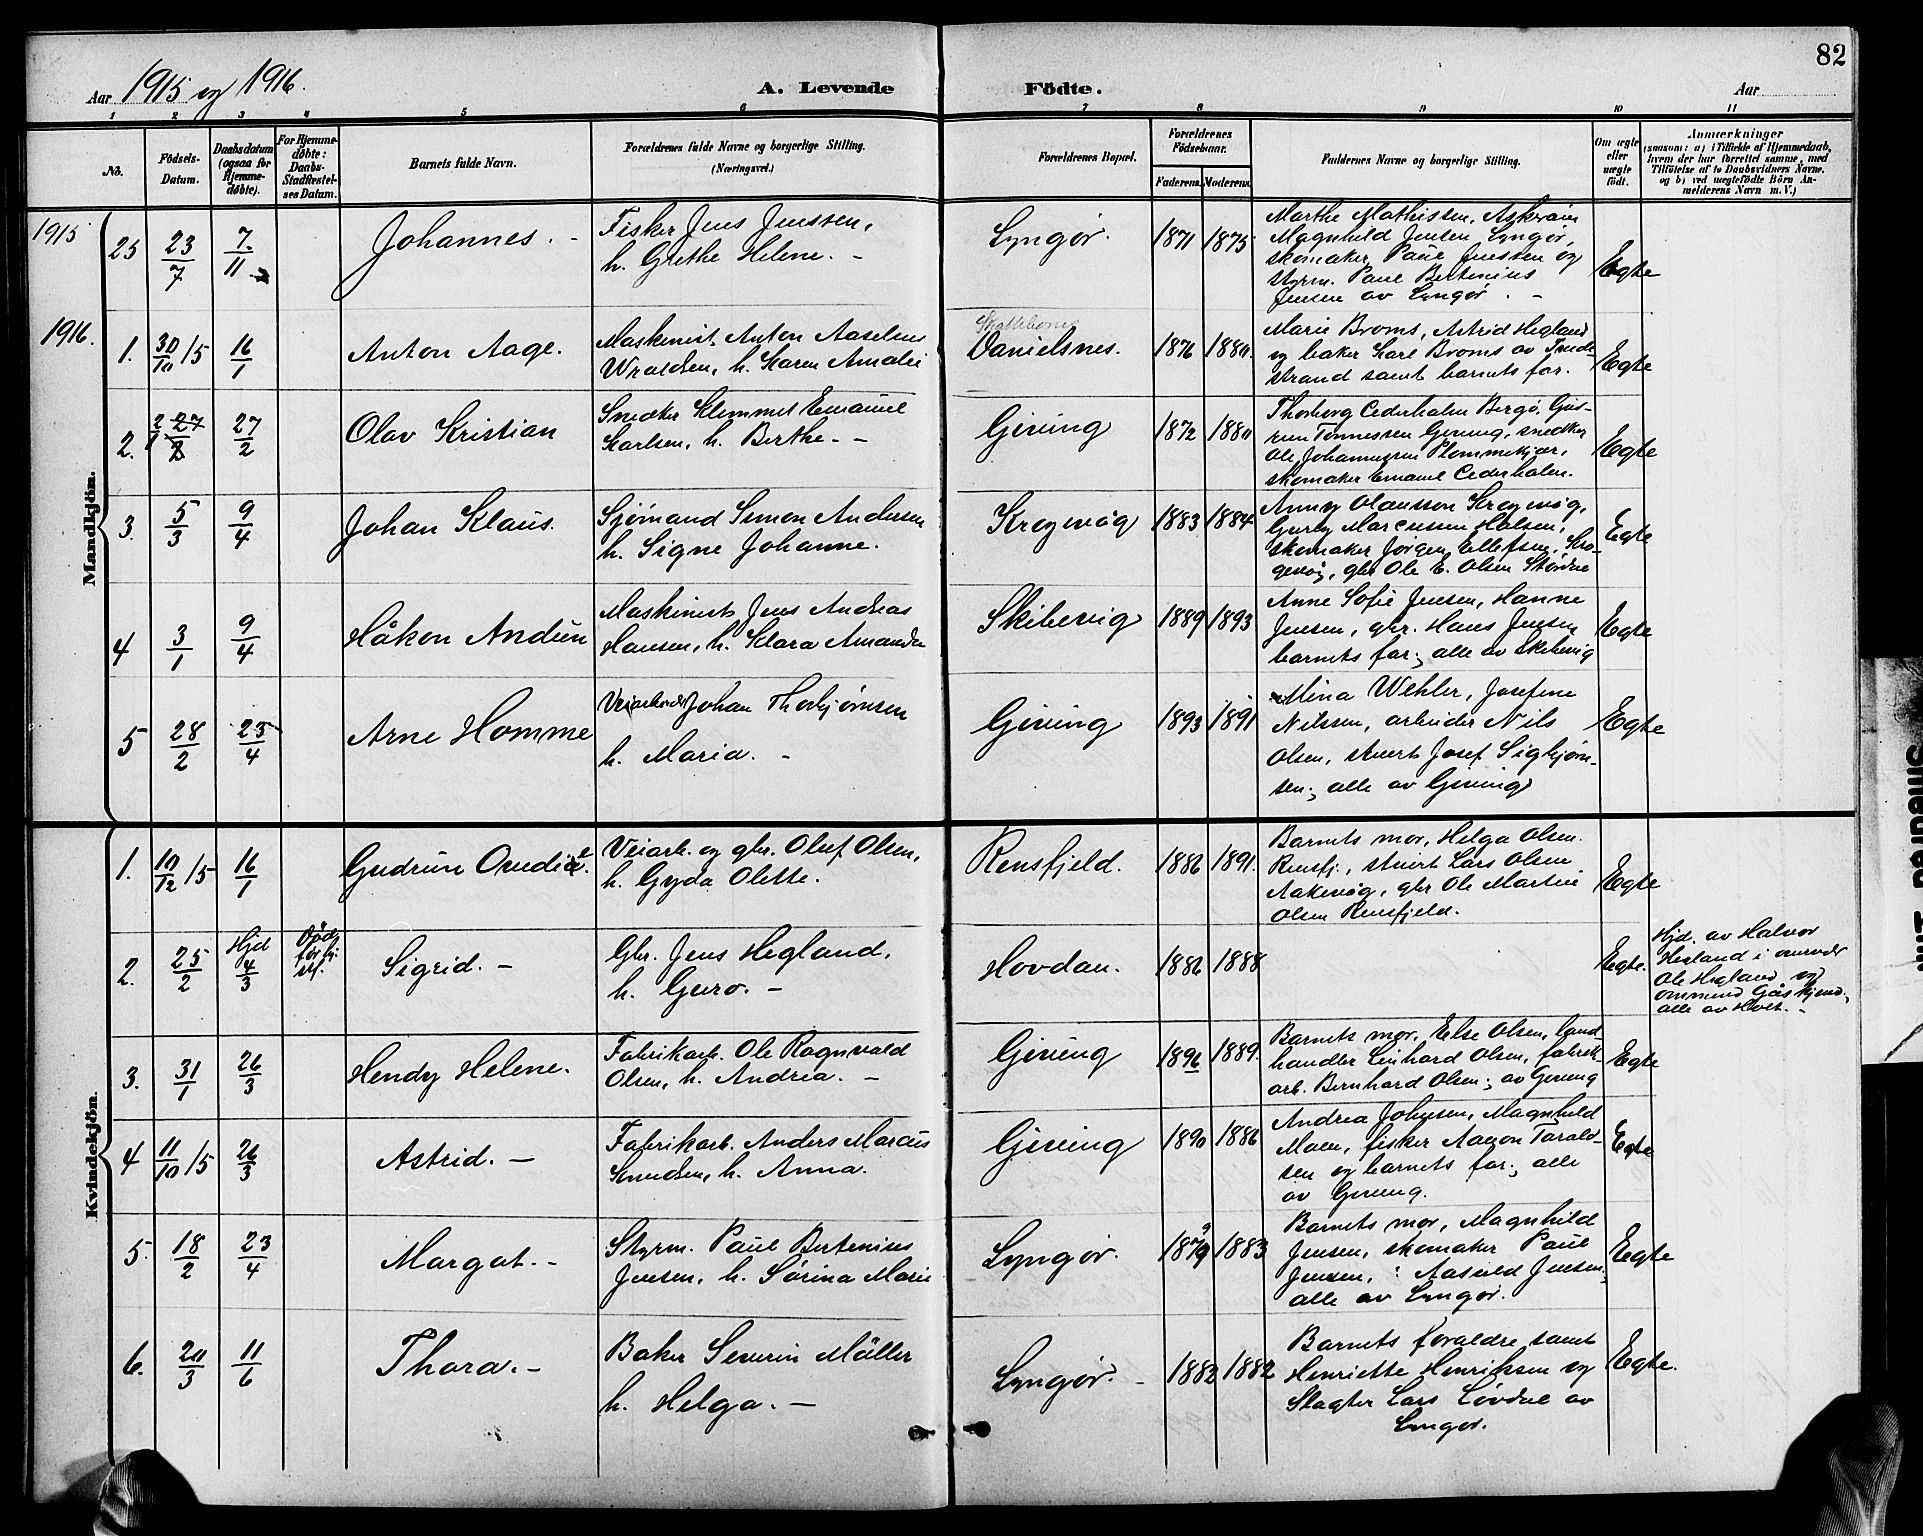 82
Aar 1915 og 1916.
A. Levende Födte.
Aar
1 2 3 4 5 6 7 8 9 10 11
No.
Födsels-Datum.
Daabsdatum (ogsaa for Hjemme-döbte).
For Hjemme-döbte: Daabs-Stadfæstel-ses Datum.
Barnets fulde Navn.
Forældrenes fulde Navne og borgerlige Stilling. (Næringsvei.)
Forældrenes Bopæl.
Forældrenes Födselsaar.
Faderens. Moderens.
Faddernes Navne og borgerlige Stilling.
Om ægte eller uægte födt.
Anmærkninger
(saasom: a) i Tilfælde af Hjemmedaab, hvem der har forrettet samme, med Tilföielse af to Daabsvidners Navne, og b) ved uægtefödte Börn An-melderens Navn m. V.)
Mandkjön.
1915
25 23/7 7/11 Johannes. -
Fisker Jens Jenssen,
h. Grethe Helene. -
Lyngør. 1871 1875
Marthe Mathissen, Askerøin
Magnhild Jensen Lyngør,
skomaker Paul Jenssen og
styrm. Paul Bertenius
Jensen av Lyngør. -
Egte
1916.
1. 30/10 15 16/1 Anton Aage.
Maskinist Anton Aaselsen
Wraldsen, h. Karen Amalie
Danielsnes. 1876 1880.
Marie Broms, Astrid Hegland
og baker Karl Broms av Tvede-
strand samt barnets far.
Egte
2. 27/2 Olav Kristian
Snedker Klemmet Emanuel
Karlsen, h. Berthe. -
Giving 1872 1880
Thorborg Cederholm Bergø, Gus-
run Tønnessen Giving, snedker
Ole Johannesen Plommekjær,
skomaker Emanuel Cederholm.
Egte
3. 5/3 9/4 Johan Klaus.
Sjømand Simon Andersen
h. Signe Johanne.
Krogevåg 1883 1884
Anny Olausson Krogevåg,
Gurly Marcussen Holsen,
skomaker Jørgen Ellefsen, Kro-
gevåg, gbr Ole E. Olsen Stordue
Egte
4 3/1 9/4 Håkon Andün
Maskinist Jens Andreas
Hansen, h. Klara Amanda
Skibevig 1889 1893
Anne Sofie Jensen, Hanne
Jensen, gbr. Hans Jensen
barnets far; alle av Skibevig
Egte
5 28/2 25/4 Arne Homme
Veiarbeider Johan Thorbjørnsen
h. Maria. -
Giving 1893 1891
Mina Wehler, Josefine
Nilssen, arbeider Nils
Olsen, stuert Josef Sigbjørn-
sen; alle av Giving
Egte
Kvindekjön.
1. 10/12 15 16/1 Gudrun Ovedie.
Veiarb. og gbr. Oluf Olsen,
h. Gyda Olette.
Rensfjeld. 1886 1891.
Barnets mor, Helga Olsen
Rensfj., stuert Lars Olsen
Aakevåg, gbr Ole Martin
Olsen Rensfjeld.
Egte
2. 25/2 Hjd 4/3 Død før kj. st. Sigrid. -
Gbr. Jens Hegland,
h. Guro. -
Hovdan. 1886 1888
Egte.
Hjd. av Halvor
Hegland i nærvær
Ole Hegland og
alle av Holt. -
3. 31/1 26/3 Hendy Helene.
Fabrikarb. Ole Ragnvald
Olsen, h. Andrea. -
Giving 1896 1889.
Barnets mor, Else Olsen, land-
handler Leinhard Olsen, fabrik-
arb. Bernhard Olsen; av Giving
Egte
4 11/10 15 26/3 Astrid. -
Fabrikarb. Anders Marcus
Knudsen, h. Anna.
Giving 1890 1886
Andrea Johnsen, Magnhild
Moen, fisker Aanon Tarald-
sen og barnets far; alle
av Giving.
Egte
5. 18/2 23/4 Margot. -
Styrm. Paul Bertenius
Jensen, h. Sørina Marie
Lyngør. 1879 1883
Barnets mor, Magnhild
Jensen, skomaker Paul
Jensen, : Aasvald Jensen;
alle av Lyngør.
Egte
6. 20/3 11/6 Thora. -
Baker Severin Möller
h. Helga. -
Lyngør. - 1882 1882
Barnets foraldre samt
Henriette Henriksen og
Slagter Lars Løvdal av
Lyngør.
Egte.